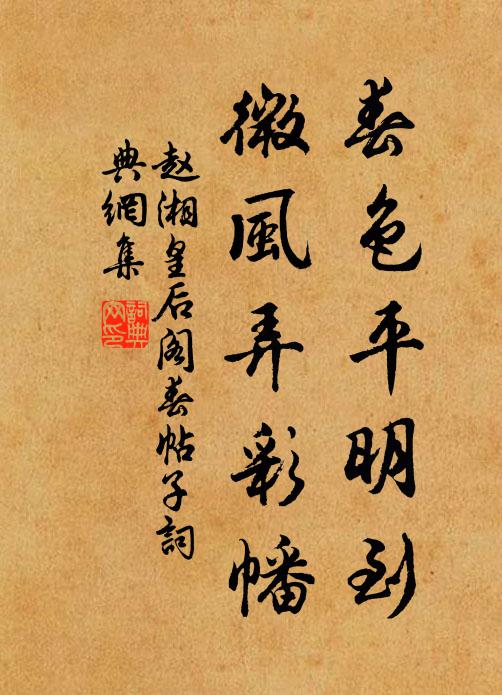 春色平明到
微風弄彩幡
赵湘皇后阁春帖子詞
典網集
詞典网印